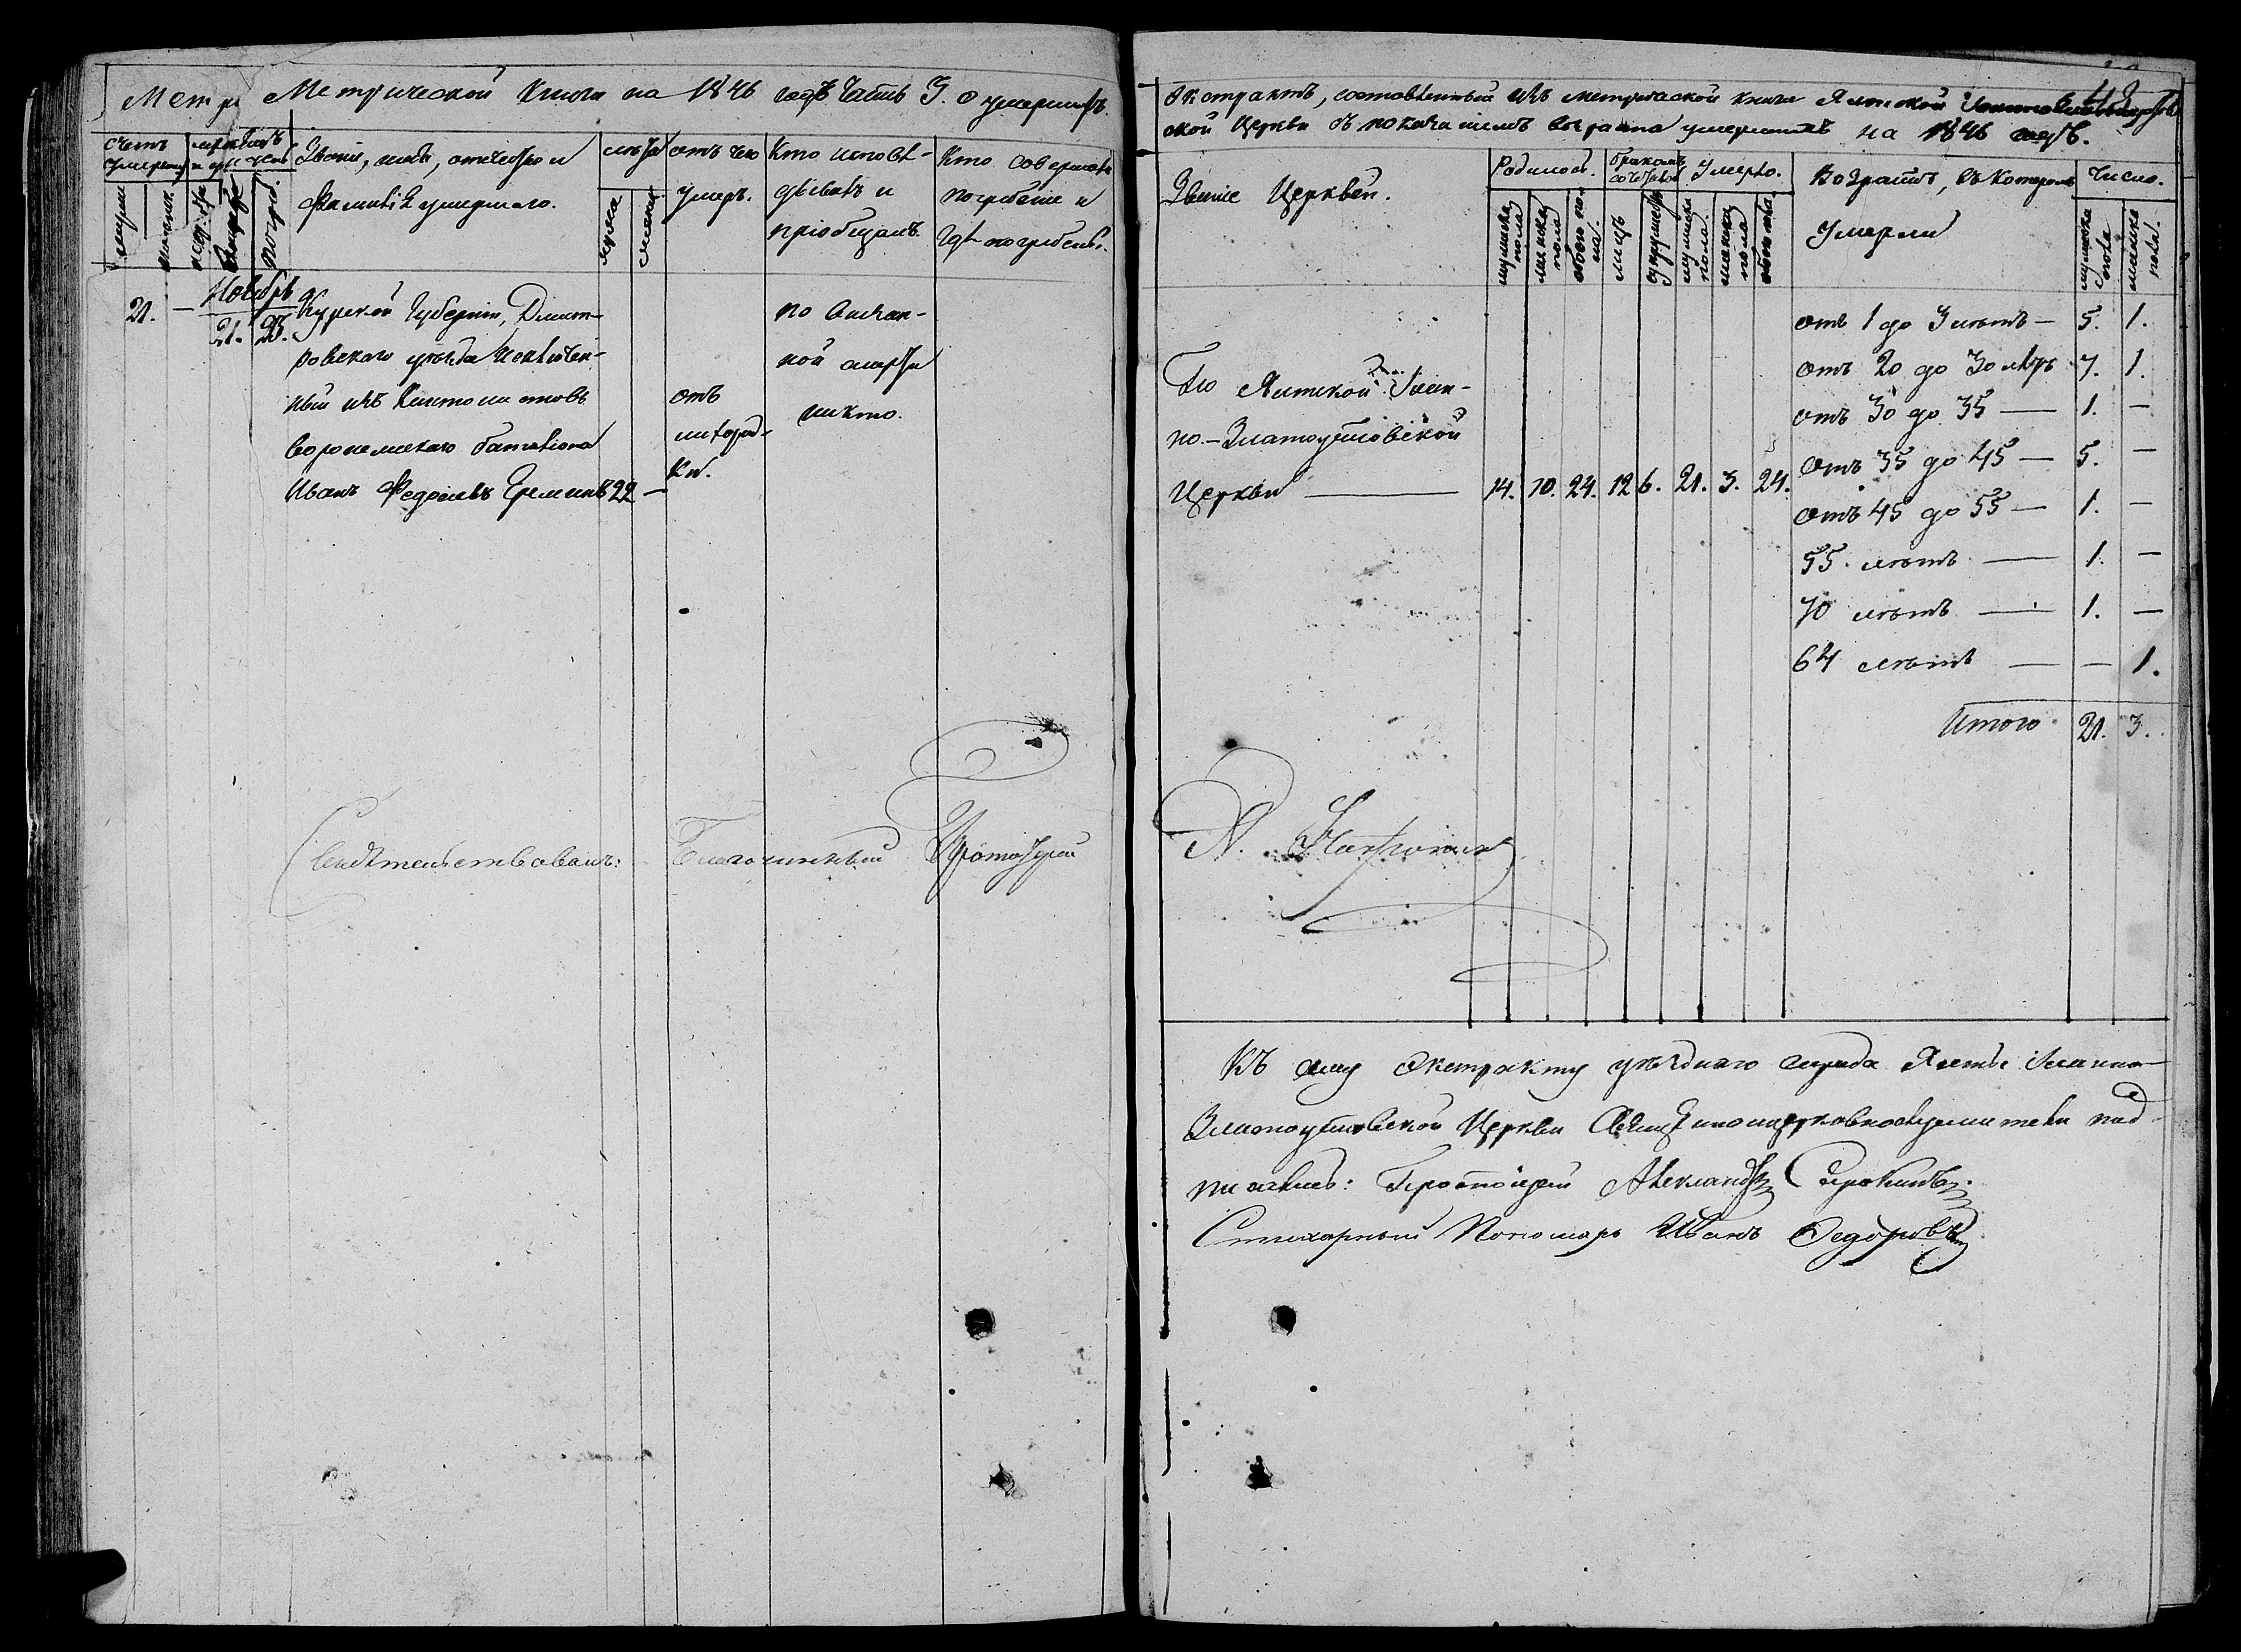 Метрической Книги на 1846 годъ Часть 3. о умершихъ.
Счетъ умершихъ
Мѣсяцъ и день
Званіе, имя, отчество и
фамилія умершаго.
лѣта
отъ чего
умеръ.
Кто исповѣ-
дывалъ и
пріобщалъ.
Кто совершалъ
погребеніе и
гдѣ погребены.
Ноябрь
21. — 21. 23.
Курской Губерніи, Дмит-
ровскаго уѣзда
изъ Кантонистовъ
баталіона
Иванъ Федоровъ Ереминъ 22 —
отъ
ки.
по внезап-
ной смерти
никто.
Свидѣтельствовалъ: Благочинный Протоіерей
Экстрактъ, составленный изъ метрической книги Ялтской
ской Церкви съ показаніемъ возраста умершихъ на 1846 годъ.
Званіе Церквей.
Родилось.
Бракомъ
Умерло.
Возрастъ, въ которомъ
Умерли
Число.
мужска пола
женска пола
обоего пола.
По Ялтской Іоан-
но-Златоустовской
Церкви — 14. 10. 24. 12 6. 21. 3. 24.
отъ 1 до 3 лѣтъ — 5. 1.
отъ 20 до 30 лѣтъ 7. 1.
отъ 30 до 35 — 1. —
отъ 35 до 45 — 5. —
отъ 45 до 55 — 1. —
55 лѣтъ — 1. —
70 лѣтъ — 1. —
64 лѣтъ — — 1.
Итого 21. 3.
Къ сему Экстракту уѣзднаго города Ялты Іоанно-
Златоустовской Церкви Священноцерковнослужители под-
писались: Протоіерей Александръ
Стихарный Пономарь Иванъ Федоровъ